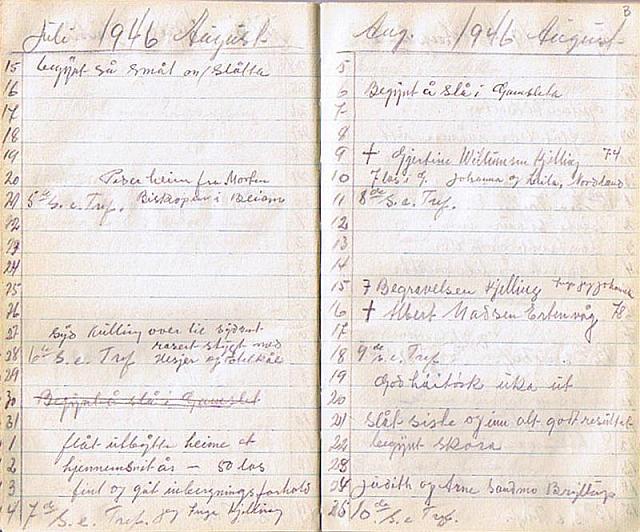 Juli 1946 August
15 begynt så smått on/slåtta
16
17
18
19
20 Peder heim fra Morten
21 5de S. e. Tref. Biskopen i Beiarn
22
23
24
25
26
27 Syd Kulling over lie
28 6te S. e. Tref rasert stygt med hesjer og
29
30 Begynt å slå i Gamslet
31
1 flåt utbytte heime et
2 hjennemsnit år – 50 las
3 fint og gåt inbergningsforhold
4 7de S. e. Tref. Inge Kjelling
Aug. 1946 August
B
5
6 Begynt å slå i Gamsleta
7
8
9 † Gjertine Kjelling 74
10 7 las i G. Johanna og Nordland
11 8de S. e. Tref.
12
13
14
15 Begravelsen Kjelling
16 † Albert Madsen Ertenvåg 78
17
18 9de S. e. Tref
19 God håitørk uka ut
20
21 slåt siste og inn alt godt resultat
22 begynt skora
23
24 Judith og Arne Sandmo Bryllup
25 10de S. e. Tref.